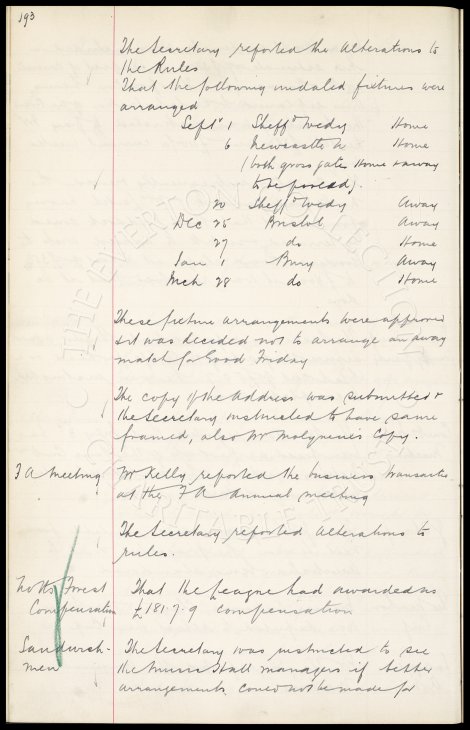 193
The Secretary reported the alterations to
the Rules
That the following undated fixtures were
arranged
Septr 1 Sheffd Wedy Home
6 Newcastle U Home
(both gross gates Home & away
to be pooled).
20 Sheffd Wedy Away
Dec 25 Bristol Away
27 do Home
Jan 1 Bury Away
Mch 28 do Home
These fixture arrangements were approved
& it was decided not to arrange an away
match for Good Friday
The copy of the Address was submitted &
the Secretary instructed to have same
framed, also Mr Molyneux's Copy.
F A Meeting Mr Kelly reported the business transacted
at the F A Annual meeting
The Secretary reported alterations to
rules.
Notts Forest That the League had awarded us
Compensation £181.7.9 compensation
Sandwich- The Secretary was instructed to see
men the Music Hall managers if better
arrangements could not be made for
THE EVERTON COLLECTION
CHARITABLE TRUST